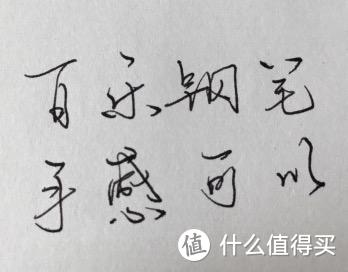 百乐钢笔
手感可以
值 什么值得买